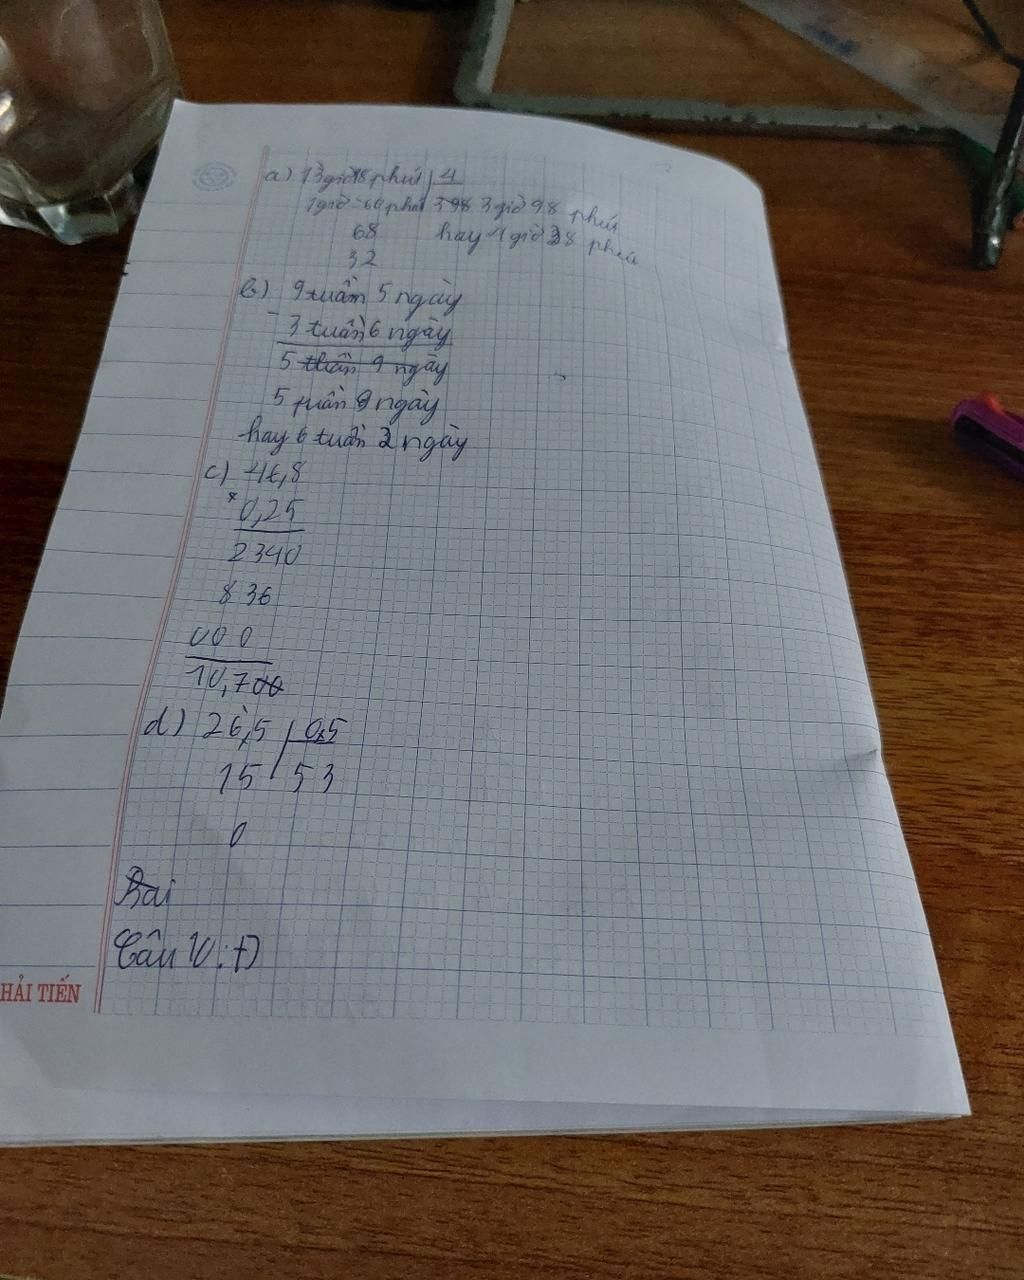 a) 13 giờ 18 phút | 4
1 giờ = 60 phút 398 3 giờ 98 phút
68 hay 4 giờ 38 phút
32
b) 9 tuần 5 ngày
- 3 tuần 6 ngày
5 tuần 9 ngày
5 tuần 9 ngày
hay 6 tuần 2 ngày
c) 46,8
× 0,25
2340
836
000
10,700
d) 26,5 | 0,5
15 53
0
Bài
Câu 10:
HẢI TIẾN